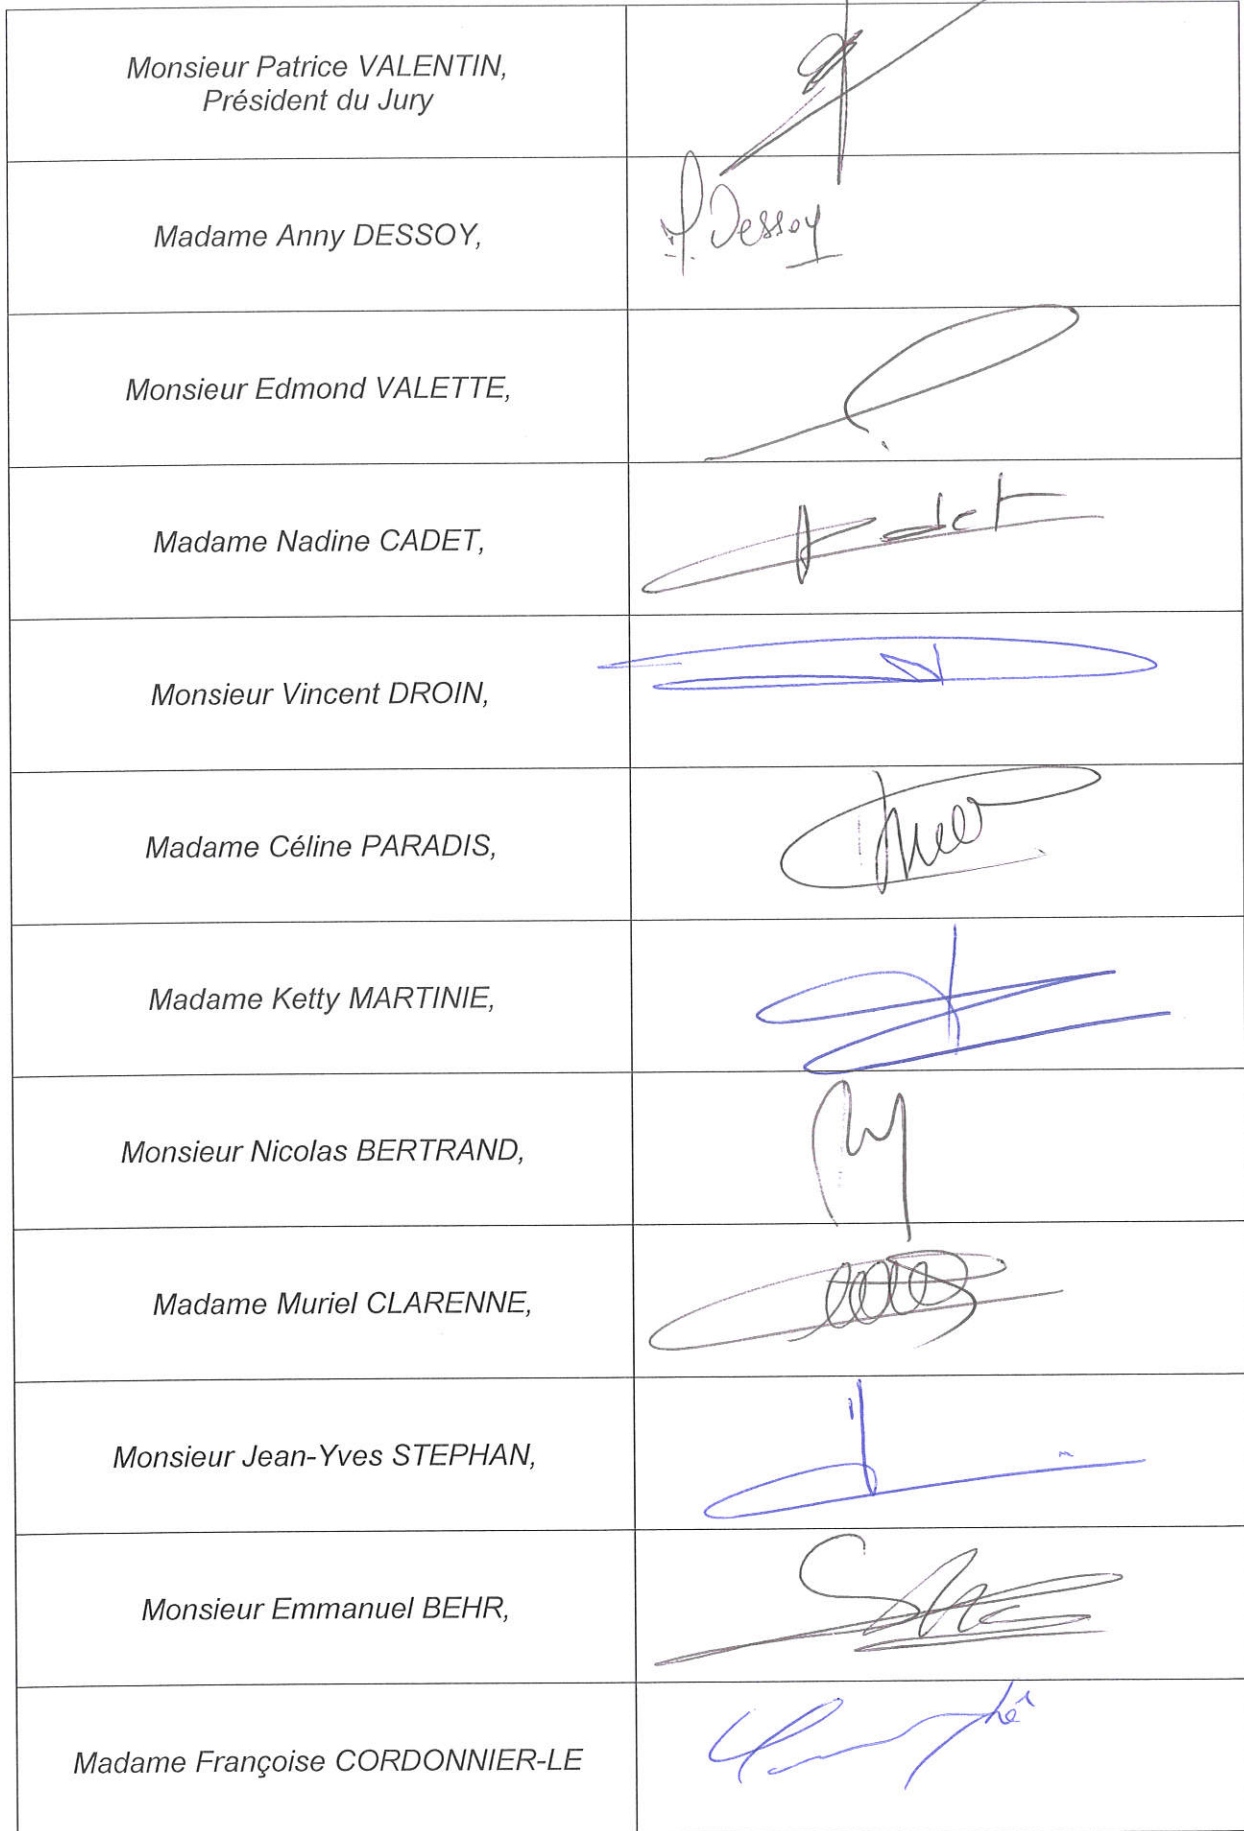 Monsieur Patrice VALENTIN,
Président du Jury
Madame Anny DESSOY,
Dessoy
Monsieur Edmond VALETTE,
Madame Nadine CADET,
Monsieur Vincent DROIN,
Madame Céline PARADIS,
Madame Ketty MARTINIE,
Monsieur Nicolas BERTRAND,
Madame Muriel CLARENNE,
Monsieur Jean-Yves STEPHAN,
Monsieur Emmanuel BEHR,
Madame Françoise CORDONNIER-LE